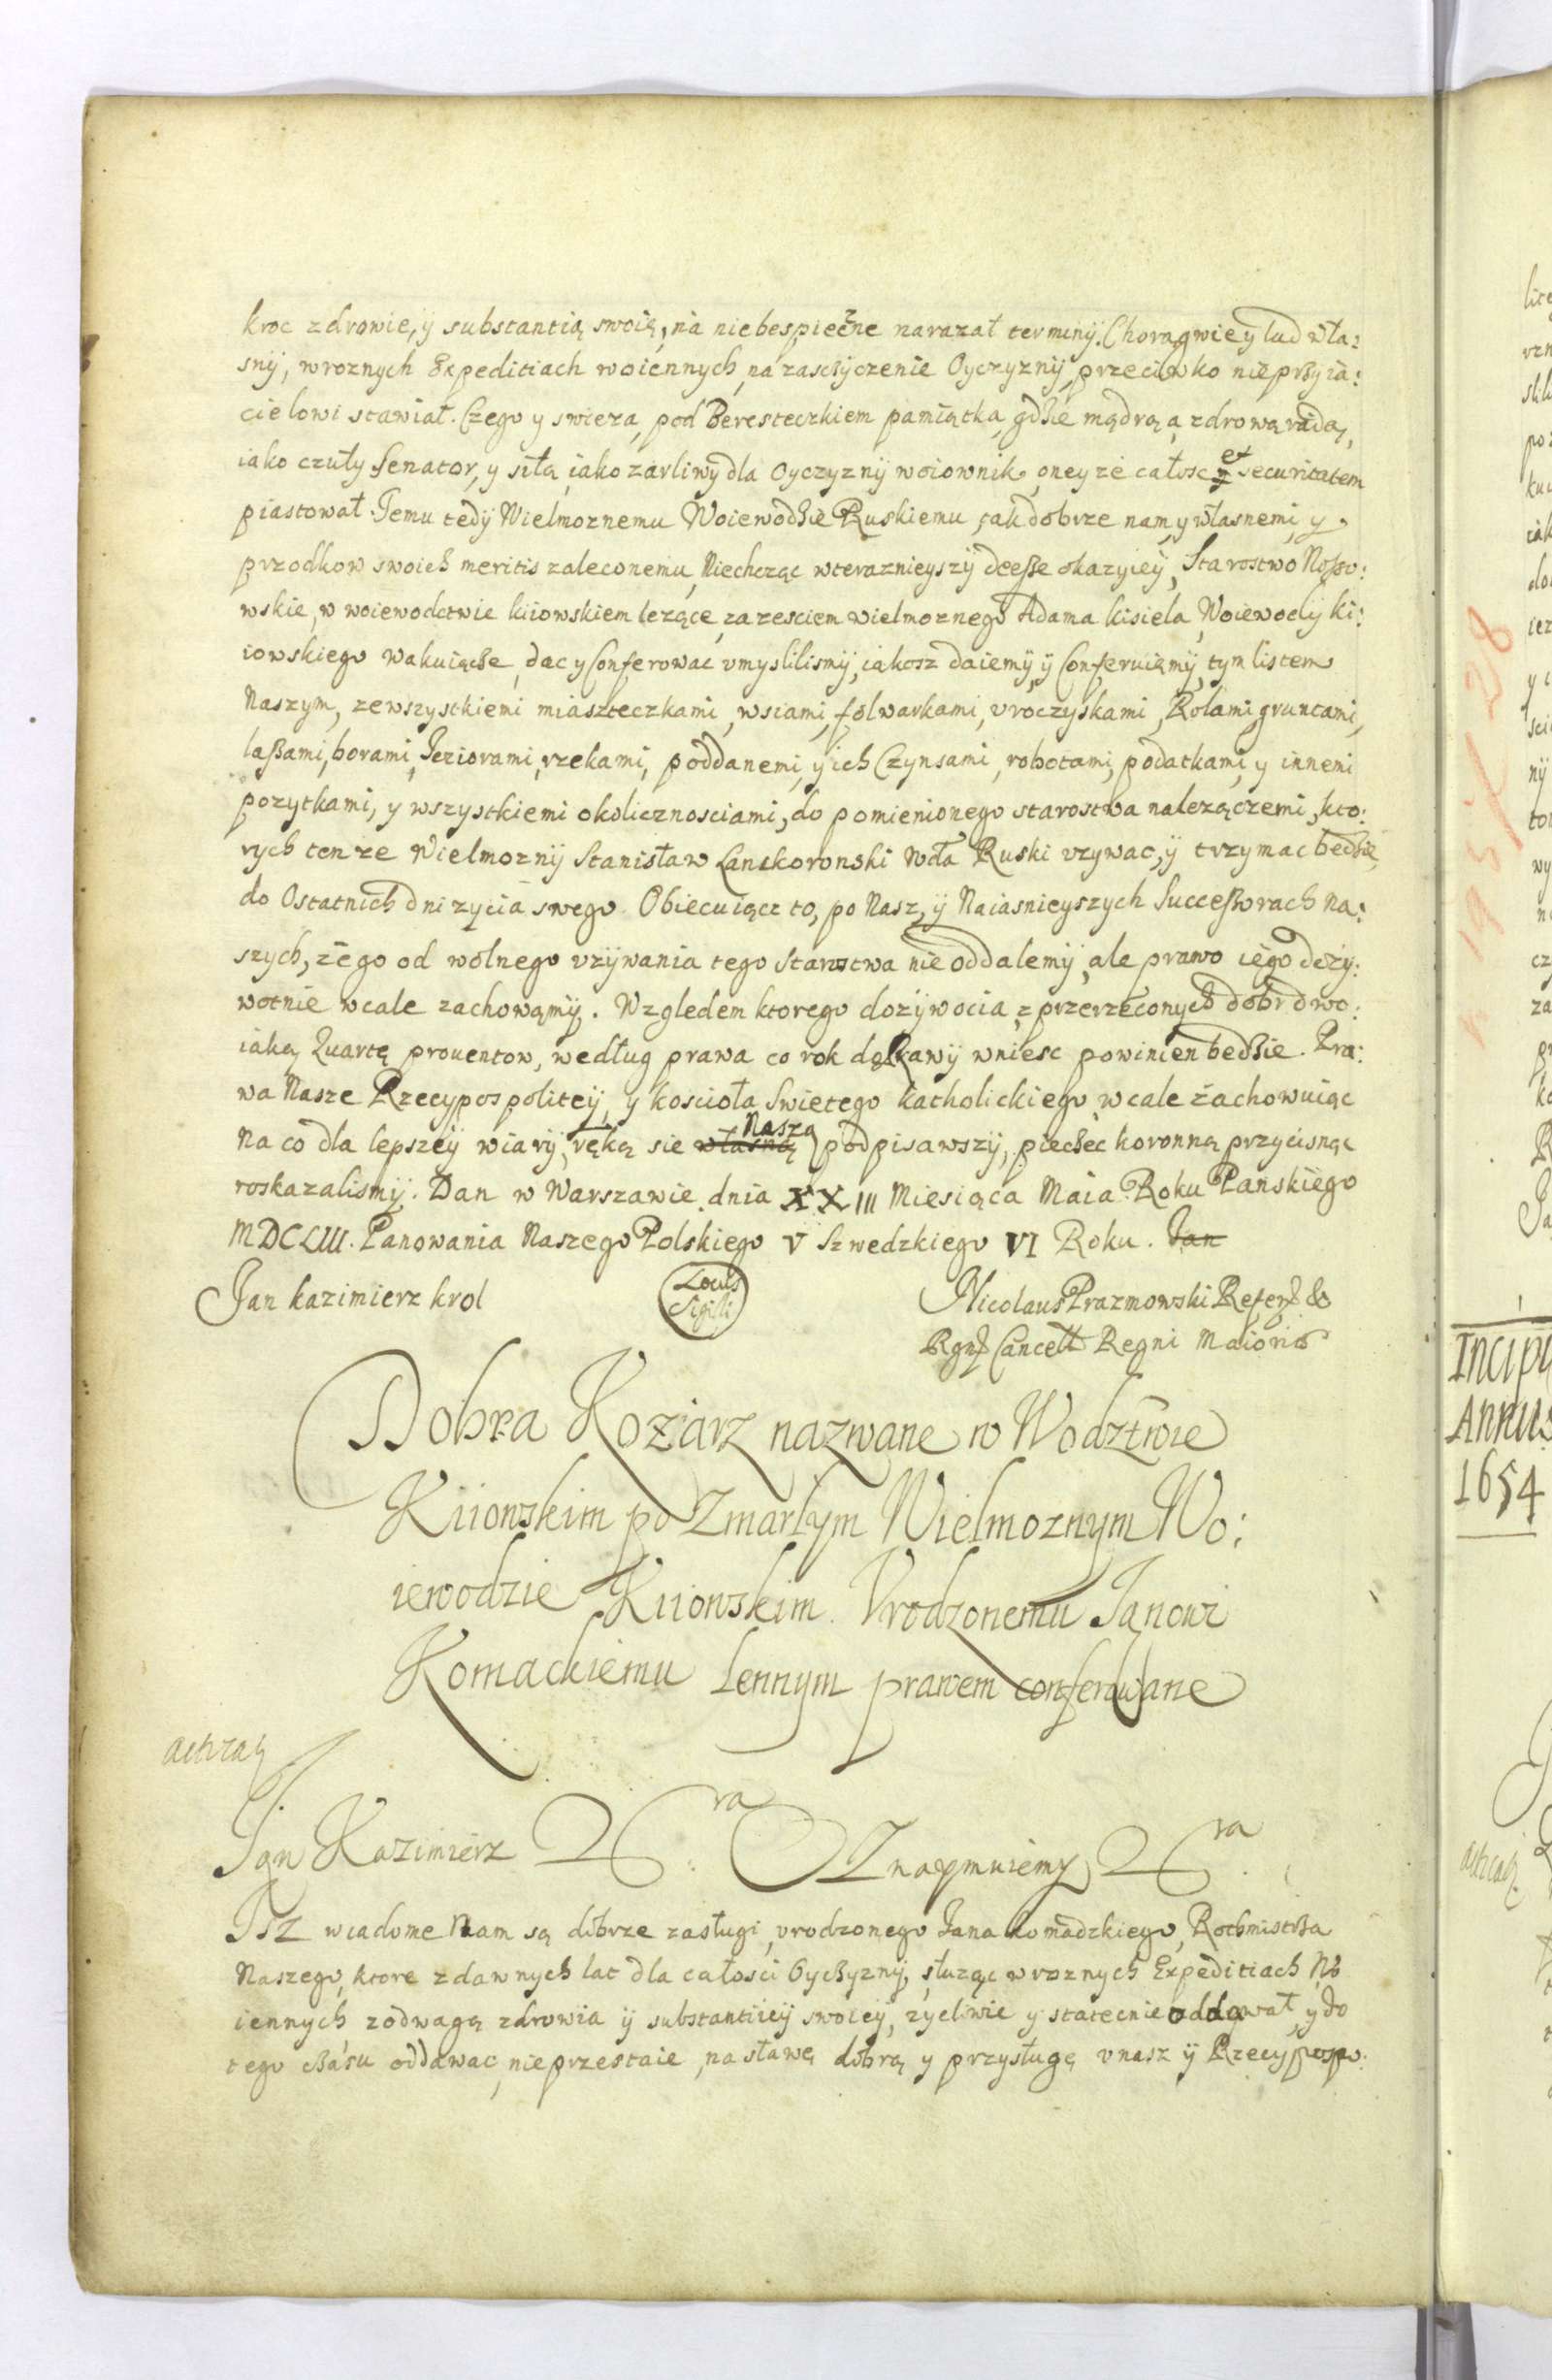 kroc zdrowie, ÿ substantią swoię, na niebespieczne narazał terminÿ. Chorągwie y lud wła:
snÿ, w roznych Expeditiach woiennych, na zasczÿczenie Oyczyznÿ, przeciwko nieprzyia:
cielowi stawiał. Czego y swieza, pod Beresteczkiem pamiątka, gdzie mądrą a zdrową radą,
iako czuły Senator, y siłą, iako zarliwy dla Oyczyznÿ woiownik, oney ze całosc et securitatem
piastował. Temu tedÿ Wielmoznemu Woiewodzie Ruskiemu, tak dobrze nam, y własnemi, y
przodkow swoich meritis zaleconemu, Niechcząc w teraznieyszÿ deesse okazyieÿ, Starostwo Nosso:
wskie, w woiewodctwie kiiowskiem lezące, za zesciem wielmoznego Adama kisiela, Woiewody ki:
iowskiego wakuiącze, dac y Conferowac vmyslilismÿ, iakosz daiemÿ, ÿ Conferuięmÿ, tym listem
Naszym, ze wszystkiemi miaszteczkami, wsiami, folwarkami, vroczyskami, Rolami, gruntami,
lassami, borami, Jeziorami, rzekami, poddanemi, y ich Czynsami, robotami, podatkami, y innemi
pozytkami, y wszystkiemi okolicznosciami, do pomienionego starostwa nalezączemi, kto:
rych ten ze Wielmoznÿ Stanisław Lanckoronski Wda Ruski vzywac, ÿ trzymac bedzie,
do Ostatnich dni zycia swego. Obiecuiącz to, po Nasz, ÿ Naiasnieyszych Successorach na:
szych, ze go od wolnego vzÿwania tego Starostwa nie oddalemÿ, ale prawo iego dozy:
wotnie wcale zachowamÿ. Wzgledem ktorego dozÿwocia, z przerzeconych dobr dwo:
iaką Quartę prouentow, według prawa co rok do Rawÿ wniesc powinien bedzie. Pra:
wa Nasze Rzecypospoliteÿ, y koscioła Swietego katholickiego wcale zachowuiąc
Na co dla lepszeÿ wiarÿ, ręką sie własną Naszą podpisawszÿ, pieczec koronną przycisnąc
roskazalismÿ. Dan w Warszawie dnia XXIII Miesiąca Maia Roku Panskiego
MDCLIII. Panowania Naszego Polskiego V Szwedzkiego VI Roku. Jan
Jan kazimierz krol
Locus Sigilli
Nicolaus Prazmowski Refer &
Rgns Cancell Regni Maioris
Dobra Koziarz nazwane w Wodztwie
Kiiowskim po Zmarłym Wielmoznym Wo:
iewodzie Kiiowskim. Vrodzonemu Janowi
Komackiemu Lennym prawem conferowane
Jan Kazimierz &ra. OZnaymuiemy &ra.
ISZ wiadome Nam są dobrze zasługi, vrodzonego Jana komadzkiego, Rothmistrza
Naszego, ktore z dawnych lat dla całosci Oyczyznÿ, słuząc w roznych Expeditiach Wo
iennych z odwagą zdrowia ÿ substantiieÿ swoieÿ, zyczliwie y statecnie oddawał, y do
tego czasu oddawac, nie przestaie, na sławę dobrą y przysługę v nasz ÿ Rzecypospo:
Incip
Annus
1654